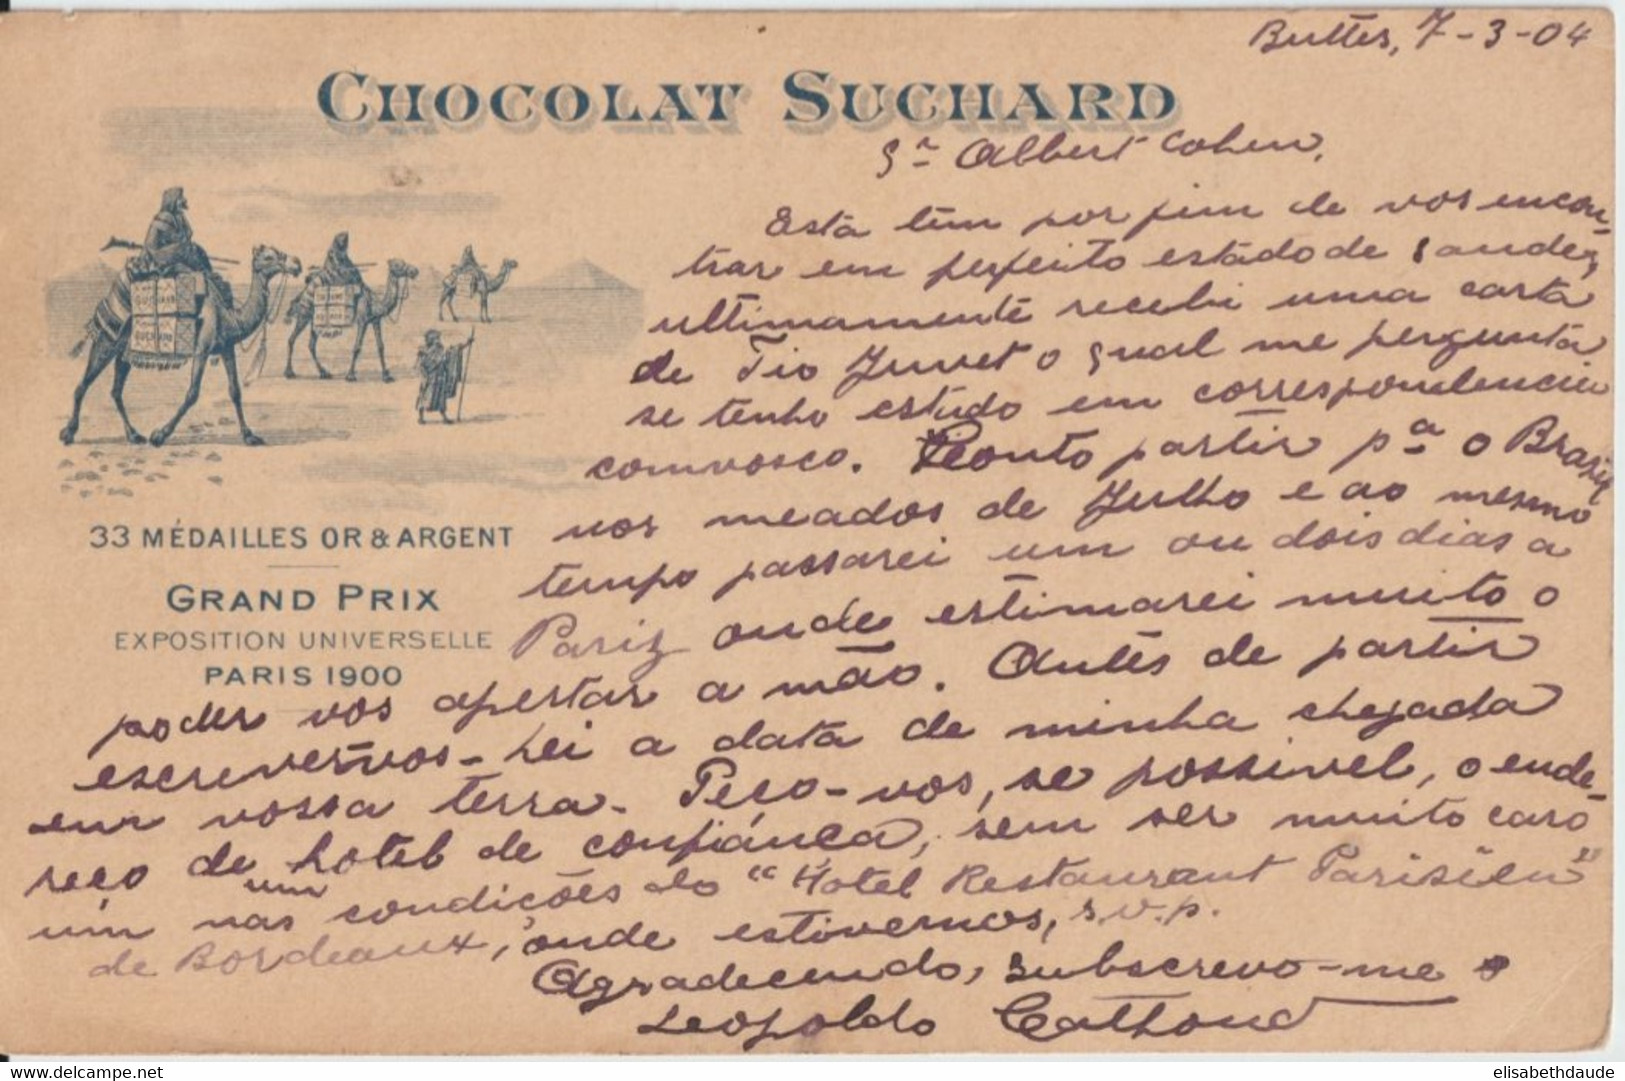 Buttes, 7-3-04
CHOCOLAT SUCHARD
Sr Albert Cohen,
Esta tem por fim de vos encon-
trar em perfeito estado de saude,
ultimamente recebi uma carta
de Tio Juvet o qual me pergunta
se tenho estado em correspondencia
comvosco. Conto partir pa o Brazil
nos meados de Julho e ao mesmo
tempo passarei um ou dois dias a
Pariz onde estimarei muito o
poder vos apertar a mão. Antes de partir
escrever-vos-hei a data de minha chegada
em vossa terra. Peço-vos, se possivel, o ende-
reço de um hotel de confiança, sem ser muito caro
um nas condições do "Hotel Restaurant Parisien"
de Bordeaux, onde estivemos, s.v.p.
Agradecendo, subscrevo-me
Leopoldo
33 MÉDAILLES OR & ARGENT
GRAND PRIX
EXPOSITION UNIVERSELLE
PARIS 1900
SUCHARD
SUCHARD
www.delcampe.net
elisabethdaude